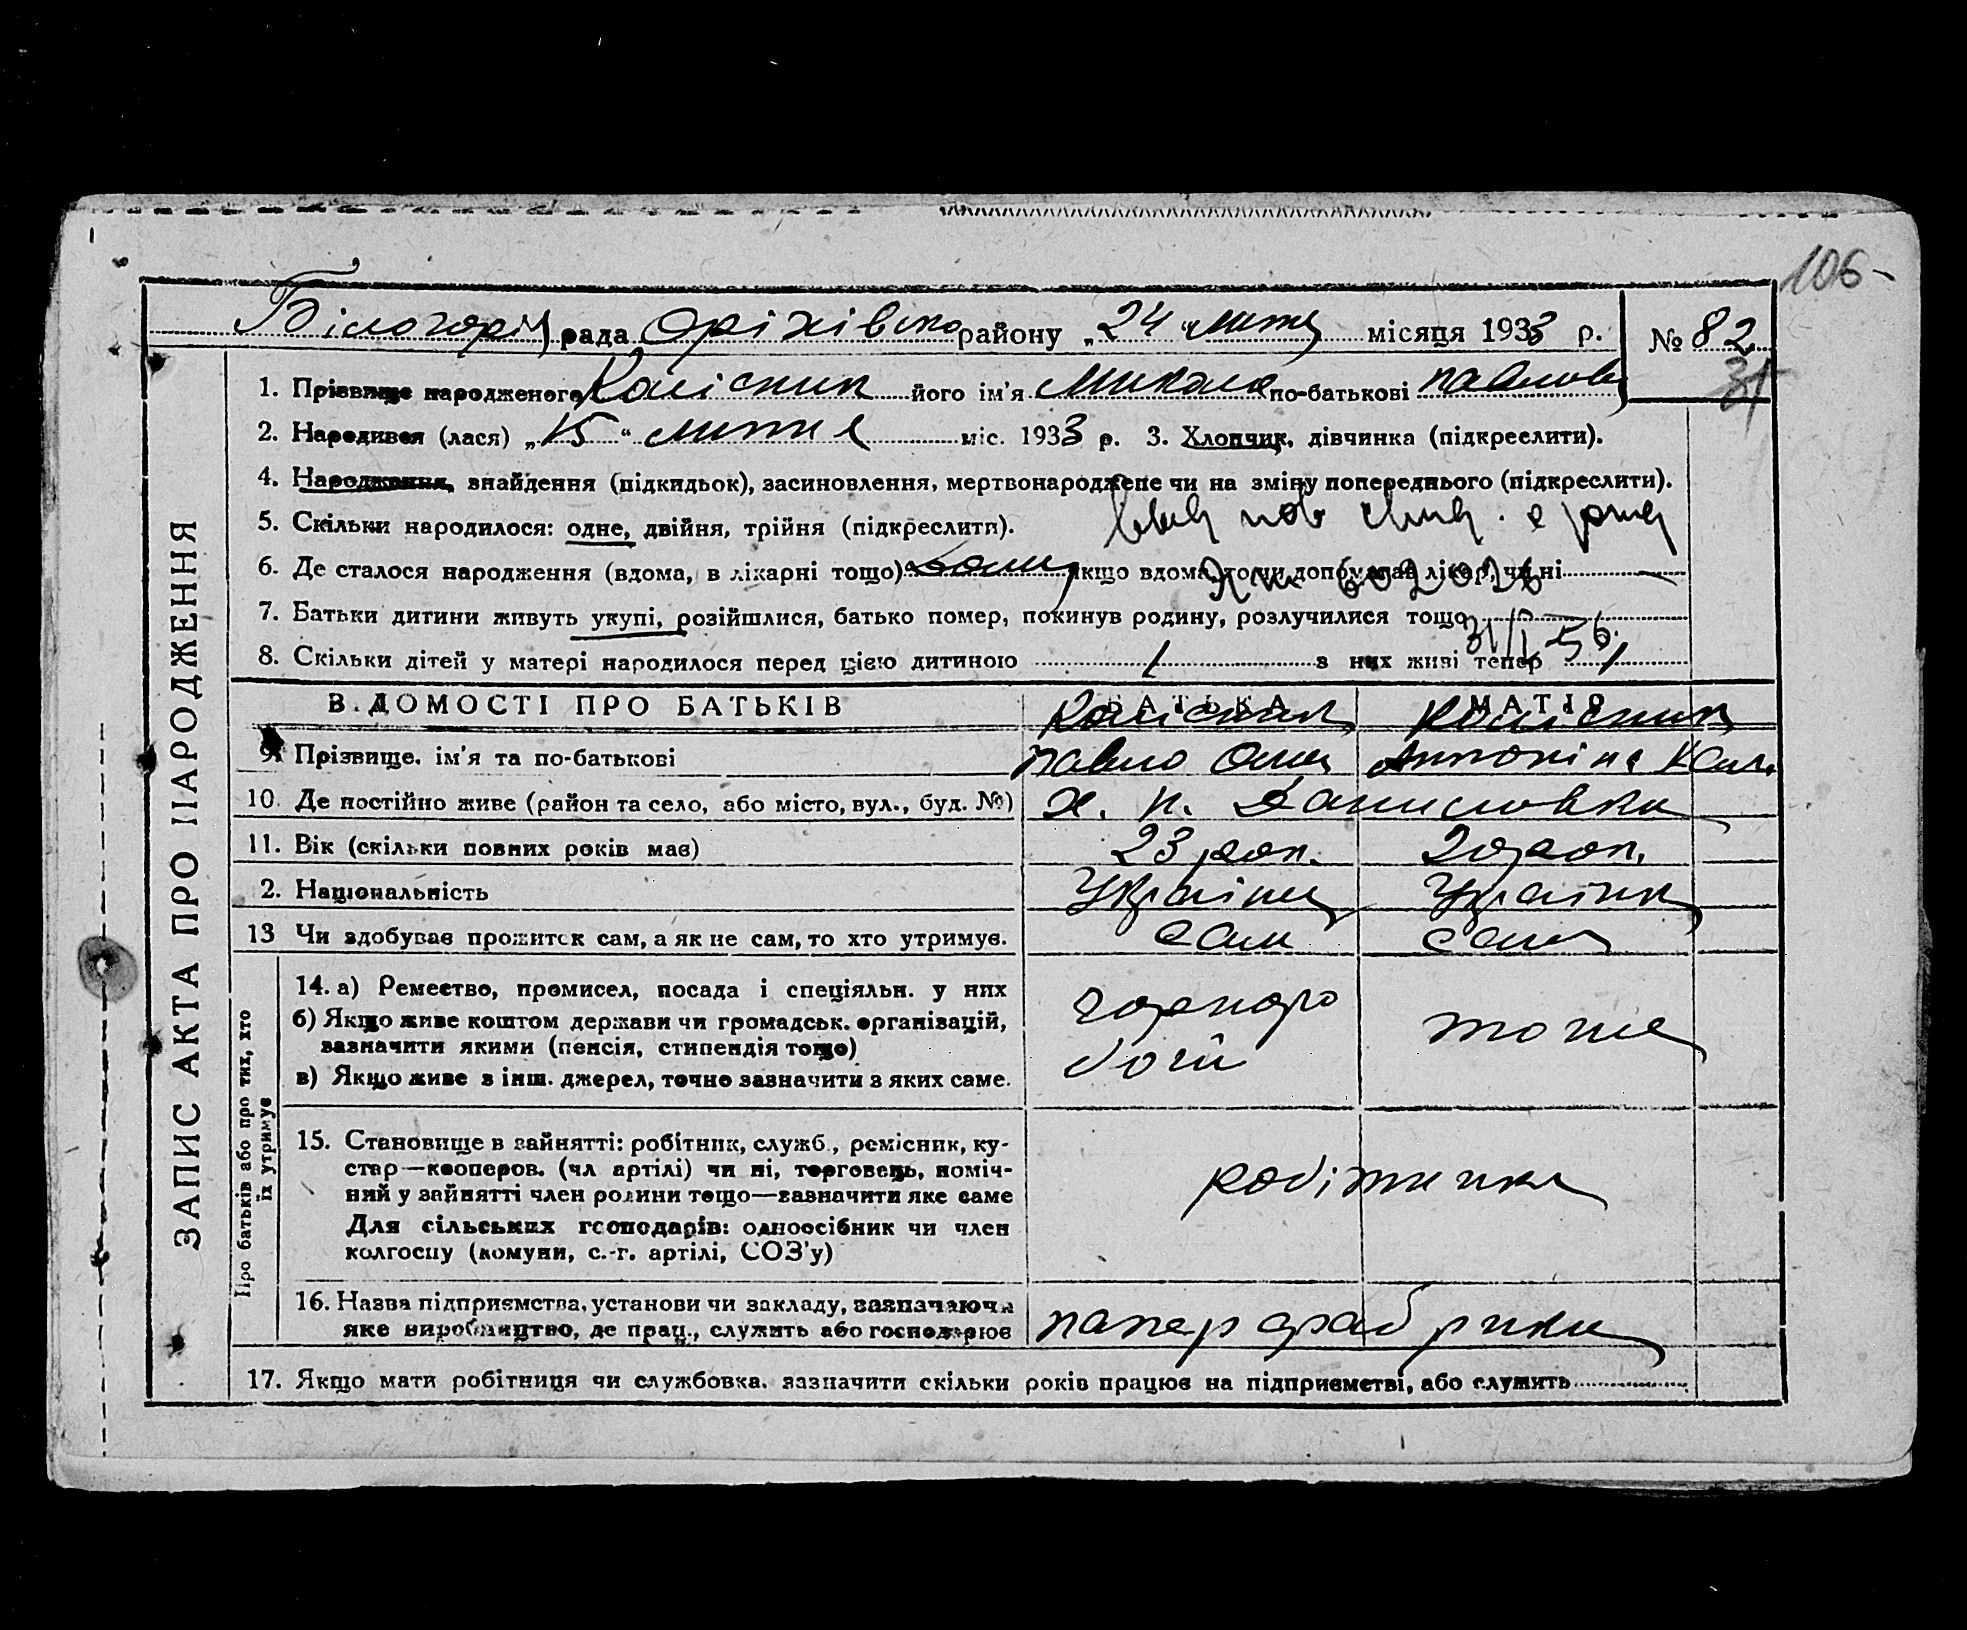 106-
Білогорів рада Оріхівсько району „24“ лютня місяця 1933 р. № 82
31
1. Прізвище народженого Колісник його ім'я Микола по-батькові Павлов
2. Народився (лася) „15“ лютня міс. 1933 р. 3. Хлопчик, дівчинка (підкреслити).
4. Народження, знайдення (підкидьок), засиновлення, мертвонароджене чи на зміну попереднього (підкреслити).
5. Скільки народилося: одне, двійня, трійня (підкреслити).
6. Де сталося народження (вдома, в лікарні тощо) дома якщо вдома, то чи допомагав лікар, чи ні —
7. Батьки дитини живуть укупі, розійшлися, батько помер, покинув родину, розлучилися тощо
31/I 56.
8. Скільки дітей у матері народилося перед цією дитиною 1 з них живі тепер 1
ЗАПИС АКТА ПРО НАРОДЖЕННЯ
В.ДОМОСТІ ПРО БАТЬКІВ БАТЬКА МАТІР
Колісник Колісник
9. Прізвище, ім'я та по-батькові Павло Антоніна
10. Де постійно живе (район та село, або місто, вул., буд. №) х. н. Даниловка
11. Вік (скільки повних років має) 23 рок. 20 рок.
2. Національність Українец Українк
13 Чи здобував прожиток сам, а як не сам, то хто утримує. сам сама
Про батьків або про тих, хто їх утримує
14. а) Ремество, промисел, посада і спеціяльн. у них
б) Якщо живе коштом держави чи громадськ. організацій,
зазначити якими (пенсія, стипендія тощо)
в) Якщо живе з інш. джерел, точно зазначити з яких саме.
чорноро
бочий тоже
15. Становище в зайнятті: робітник, служб., ремісник, ку-
стар—кооперов. (чл артілі) чи ні, торговець, поміч-
ний у зайнятті член родини тощо—зазначити яке саме
Для сільських господарів: одноосібник чи член
колгоспу (комуни, с.-г. артілі, СОЗ'у)
робітники
16. Назва підприємства, установи чи закладу, зазначаючи
яке виробництво, де прац., служить або господарює
папер фабрики
17. Якщо мати робітниця чи службовка, зазначити скільки років працює на підприємстві, або служить